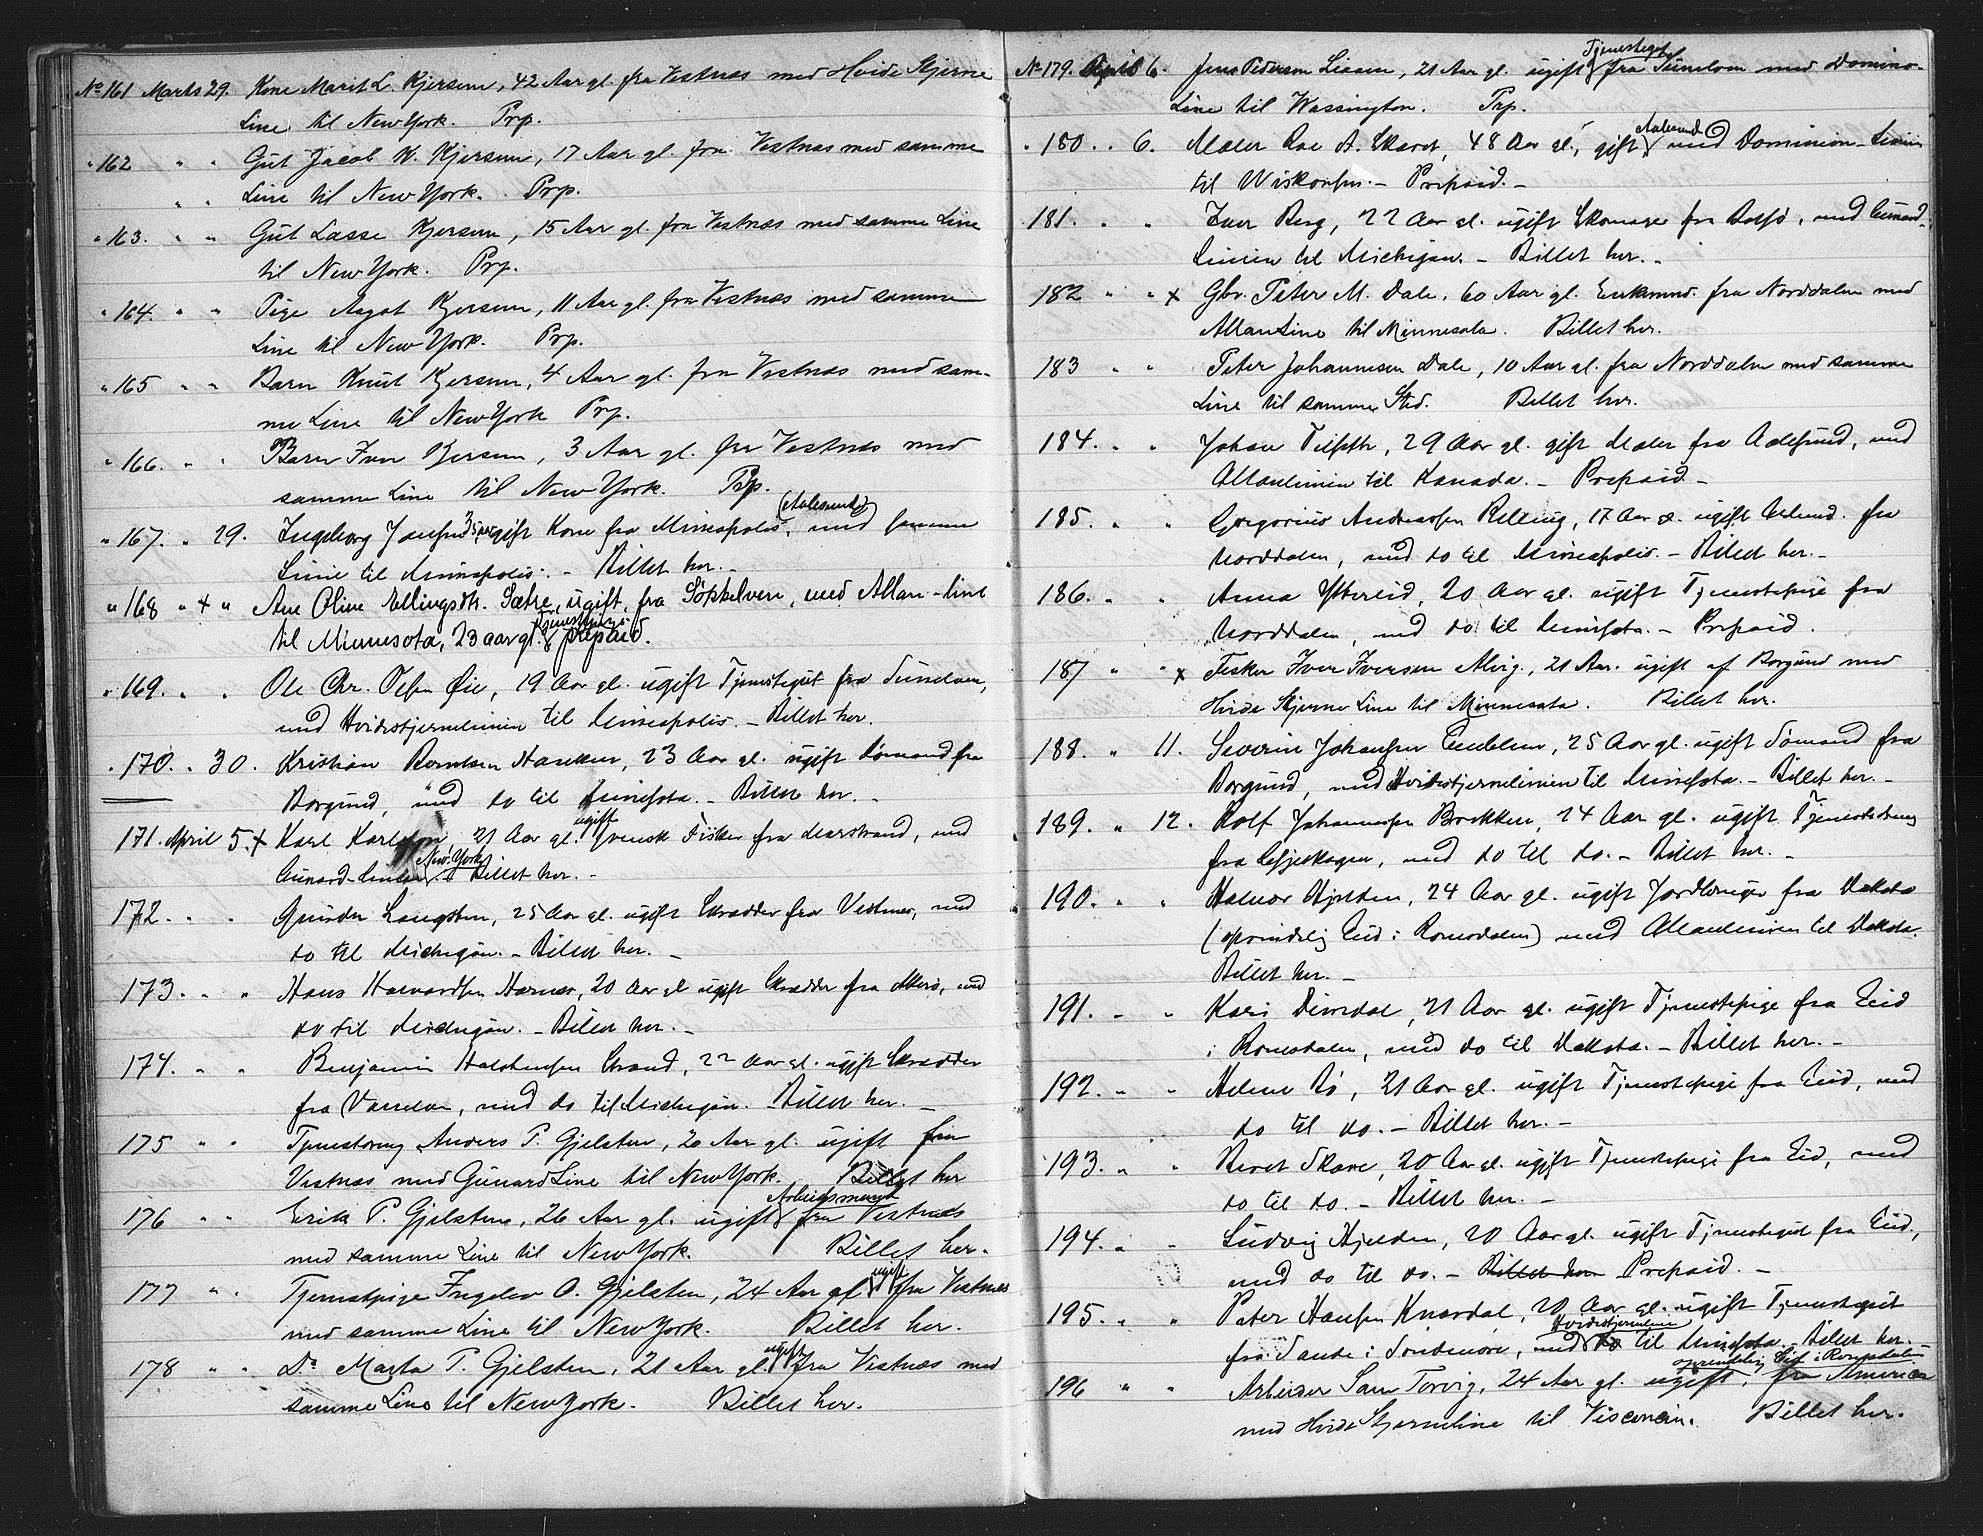 No 161 Marts 29. Kone Marit L. Kjersem, 42 Aar gl. fra Vestnæs med Hvide Stjerne
Line til New York. Prp.
" 162 " " Gut Jacob K. Kjersem, 17 Aar gl. fra Vestnæs med samme
" " Line til New York. Prp.
" 163. " " Gut Lasse Kjersem, 15 Aar gl. fra Vestnæs med samme Line
til New York. Prp.
" 164. " " Pige Aagot Kjersem, 11 Aar gl. fra Vestnæs med samme
Line til New York. Prp.
" 165 " " Barn Knut Kjersem, 4 Aar gl. fra Vestnæs med sam-
me Line til New York Prp.
" 166. " " Barn Iver Kjersem, 3 Aar gl. fra Vestnæs med
samme Line til New York. Prp.
(Aalesund)
" 167. " 29. Ingeborg gift Kone fra Minneapolis, med samme
Linie til Minneapolis. - Billet her. -
" 168 " + " Ane Oline Ellingsdtr. Sætre, ugift, fra Søkkelven, med Allan-line
til Minnesota, 23 aar gl. prepaid.
" 169. " " Ole Chr. Olsen Øie, 19 Aar gl. ugift Tjenestegut fra Sunelven,
med Hvidestjernelinien til Minneapolis. - Billet her.
" 170. " 30. Kristian Berntsen 23 Aar gl. ugift Sømand fra
Borgund, med do til Minesota. - Billet her. -
ugift
171. April 5. + Karl Karlsson 21 Aar gl. svensk Fisker fra Marstrand, med
New York
Cunard-Linien. Billet her. -
172. " " Gunder Langsten, 25 Aar gl. ugift Skrædder fra Vestnes, med
do til Michigan. - Billet her. -
173. " " Hans Haavardsen Harnes, 20 Aar gl ugift Skrædder fra Akerø, med
do til Michigan. - Billet her. -
174. " " Benjamin Halstensen Strand, 22 Aar gl. ugift Skrædder
fra Vanelven, med do til Michigan. Billet her. -
175 " " Tjenestedreng Anders P. Gjelsten, 20 Aar gl. ugift fra
Vestnæs med Cunard Line til New York. Billet her
Arbeidsmand
176 " " Erik P. Gjelsten, 26 Aar gl. ugift fra Vestnæs
med samme Line til New York. Billet her.
ugift
177 " " Tjenestpige Ingelev O. Gjelsten, 24 Aar gl fra Vestnæs
med samme Line til New York. Billet her.
ugift
178 " " Do Marta P. Gjelsten, 21 Aar gl. fra Vestnæs med
samme Line til New York. Billet her.
Tjenestegut
No 179. April 6. Jens Pedersen Lissen, 21 Aar gl. ugift fra Sunelven med Domino-
Line til Wassington. Prp.
Aalesund
" 180. " 6. Maler Roe A. Skaret, 48 Aar gl., gift, med Dominion-Linien
til Wiskonsin. - Prepaid. -
181. " " Iver Berg, 22 Aar gl. ugift Skomager fra Bolsø, med Cunard-
Linien til Michigan. - Billet her. -
182 " " x Gbr. Peter M. Dale, 60 Aar gl. Enkemnd. fra Norddalen med
Allan Line til Minnesota. Billet her.
183 " " Peter Johannesen Dale, 10 Aar gl. fra Norddalen med samme
Line til samme Sted. Billet her.
184. " " Johan 29 Aar gl. gift Maler fra Aalesund, med
Allanlinien til Kanada. - Prepaid -
185. " " Gregorius Andreassen Relling, 17 Aar gl. ugift fra
Norddalen, med do til Mineapolis. - Billet her. -
186. " " Anna Ytterlid, 20 Aar gl. ugift Tjenestepige fra
Norddalen, med do til Minesota. - Prepaid.
187 " " x Fisker Iver Iversen Alvig, 21 Aar. ugift af Borgund med
Hvide Stjerne Line til Minnesota. Billet her.
188. " 11. Severin Johansen Emblem, 25 Aar gl. ugift Sømand fra
Borgund, med Hvidestjernelinien til Minesota. - Billet her. -
189. " 12. Rolf Johannesen Brekken, 24 Aar gl. ugift Tjenestedreng
fra Lesjeskogen, med do til do. - Billet her. -
190. " " Halvor Hjelden, 24 Aar gl. ugift Jordbruger fra Dakota
(oprindelig Eid i Romsdalen) med Allanlinien til Dakota.
Billet her. -
191. " " Kari Dirdal, 21 Aar gl. ugift Tjenestepige fra Eid
i Romsdalen, med do til Dakota. - Billet her. -
192. " " Helene Bø, 21 Aar gl. ugift Tjenestepige fra Eid, med
do til do. - Billet her. -
193. " " Beret Skare, 20 Aar gl. ugift Tjenestepige fra Eid, med
do til do. - Billet her. -
194. " " Ludvig Hjelden, 20 Aar gl. ugift Tjenestegut fra Eid,
med do til do. - Billet her Prepaid. -
195. " " Peter Hansen Knardal, 20 Aar gl. ugift Tjenestegut
Hvidestjernelinie
fra Sande i Søndmøre, med do til Minesota - Billet her.
oprindelig Eid i Romsdalen
196 " " Arbeider Sam Torvig, 24 Aar gl. ugift, fra America
med Hvide Stjerneline til Visconsin. Billet her.